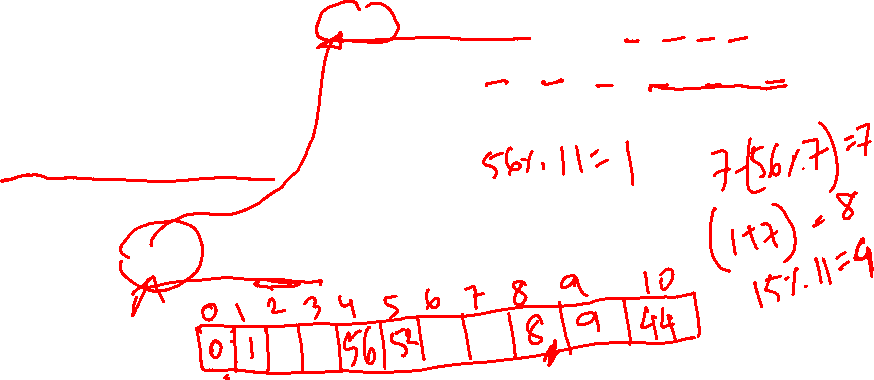 56%11=1
7-(56%7)=7
(1+7)=8
15%11=4
0 1 2 3 4 5 6 7 8 9 10
0 1 56 52 8 9 44